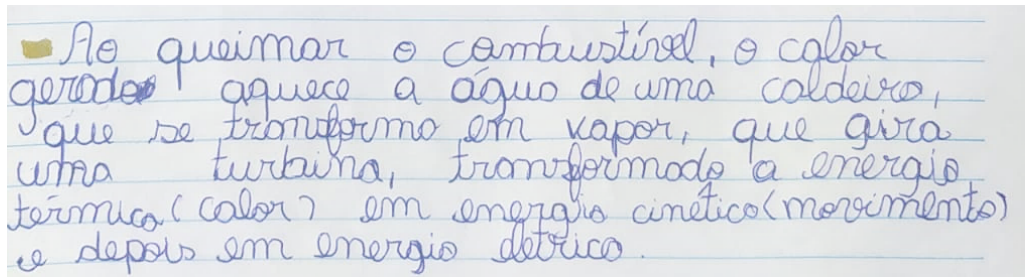 - Ao queimar o combustível, o calor
gerado aquece a água de uma caldeira,
que se transforma em vapor, que gira
uma turbina, transformado a energia
térmica (calor) em energia cinética (movimento)
e depois em energia elétrica.